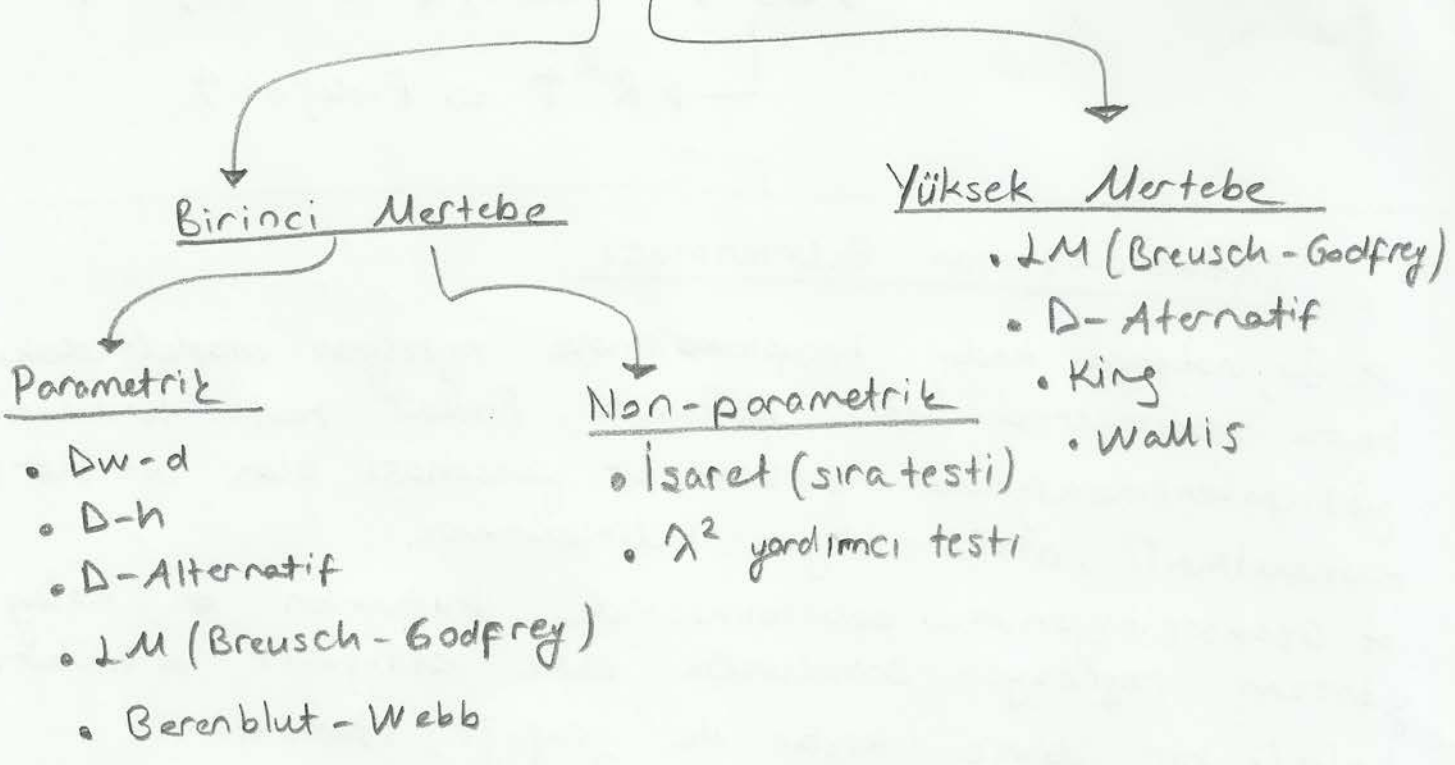 Birinci Mertebe
Parametrik
• DW-d
• D-h
• D-Alternatif
• LM (Breusch-Godfrey)
• Berenblut-Webb
Non-parametrik
• İşaret (sıra testi)
• λ² yardımcı testi
Yüksek Mertebe
• LM (Breusch-Godfrey)
• D-Aternatif
• King
• Wallis